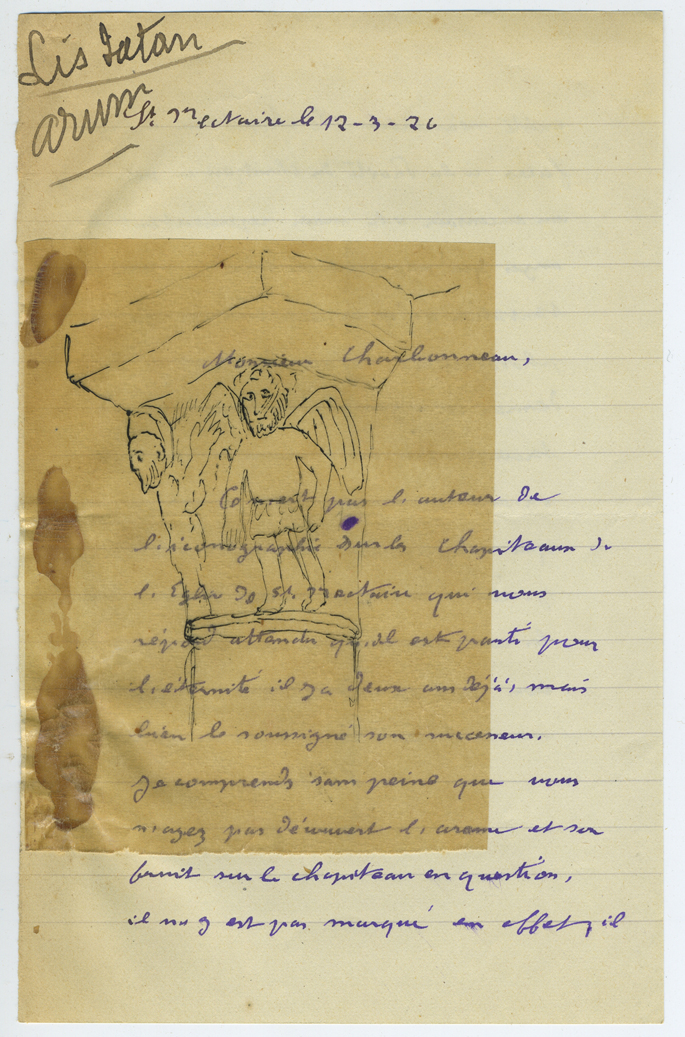 Lis Satan
arum
St Nectaire le 12-3-26
Monsieur Charbonneau,
Ce n'est pas l'auteur de
l'iconographie sur les Chapiteaux de
l'Eglise de St Nectaire qui vous
répond attendu qu'il est parti pour
l'éternité il y a deux ans déjà, mais
bien le soussigné son successeur.
Je comprends sans peine que vous
n'ayez pas découvert l'arome et son
fruit sur le chapiteau en question,
il n'y est pas marqué en effet, il